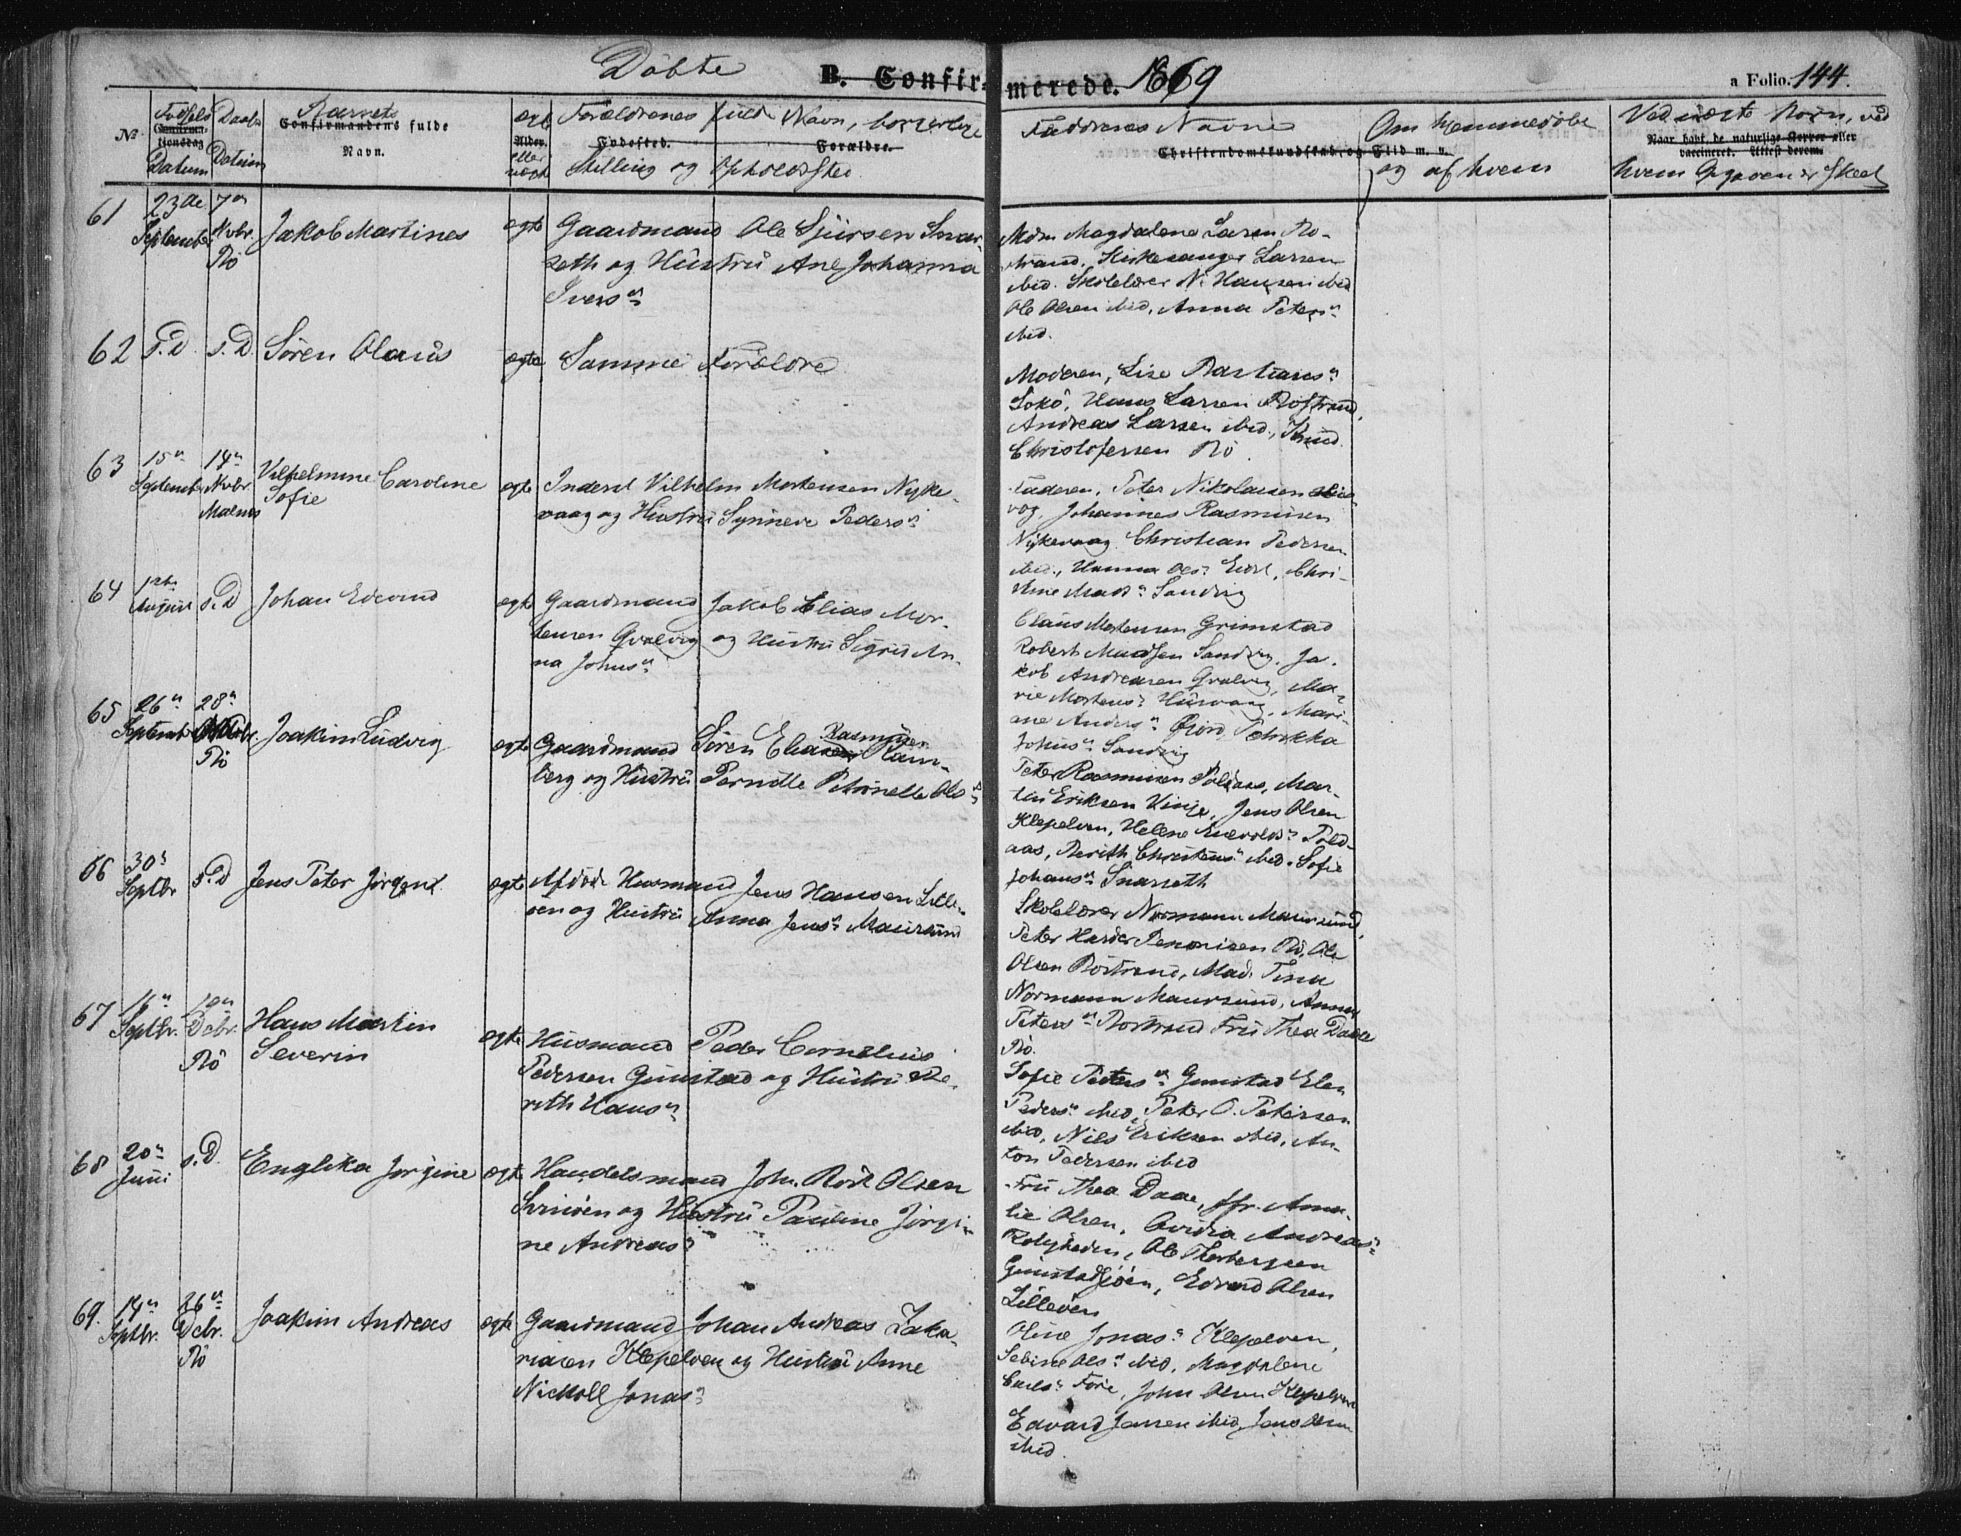 Döbte B. Confirmerede. 1869 a Folio. 144.
No. Fødsels Datum Daabs Datum Barnets fulde Navn. ægte eller uægte Forældrenes fulde Navn, borgerlige Stilling og Opholdssted Faddrenes Navne Om hjemmedøbt og af hvem
Confirmandens fulde
Navn.
Alder.
Fødested. Forældre.
Christendomskundskab og Flid m. v.
Naar havt de naturlige Kopper eller
vaccineret. Attest derom.
61 23de Septembr 7de Nvbr. Rö Jakob Martines ægte Gaardmand Ole Sjursen Snar-
seth og Hustru Ane Johanna
Ivers n
Mdm Magdalena Larsen Rö-
strand, Kirkesanger Larsen
ibid. Skolelærer N. Hansen ibid
Ole Olsen ibid, Anna Peters n
ibid.
62 s. D. s. D. Sören Olaus ægte Samme Forældre
Moderen, Lise Bastians n
Hans Larsen Röstrand,
Andreas Larsen ibid., Knud
Christofersen Rö.
63 15n Septembr 14n Nvbr. Malnes Vilhelmine Caroline
Sofie
ægte Inderst Vilhelm Mortensen Nyke-
vaag og Hustru Synneve Peders n
Faderen, Peter Nikolaisen
Johannes Rasmussen
Nykevaag. Christian Pedersen
ibid., Hanna Ols n Eidet, Chri-
stine Mads n Sandvig
64 1ste August s. D Johan Edvard ægte Gaardmand Jakob Elias Mor-
tensen Qvalvig og Hustru Sigrid An-
na Johns n
Claus Mortensen Grimstad
Robert Madsen Sandvig, Ja-
kob Andreasen Qvalvig, Ma-
rie Mortens n, Mari-
ane Anders n Fjord, Petrikka
Johns n Sandvig
65 26n Septembr 28n Novbr. Rö Joakim Ludvig ægte Gaardmand Sören Elias Rasmussen Ram-
berg og Hustru Pernille Petronelle Ols n
Peter Rasmussen Poldaas, Mar-
tin Eriksen Vinje, Jens Olsen
Klepelven, Helene Enevolds n Pold-
aas, Berith Christens n ibid. Sofie
Johans n Snarseth
66 30n Septbr s. D Jens Peter Jörgen ægte Afdöde Husmand Jens Hansen Lille-
öen og Hustru Anna Jens n Maursund
Skolelærer Normann Maursund,
Peter Harder Rö, Ole
Olsen Röstrand, Mad. Tina
Normann Maursund, Anna
Peters n Röstrand Fru Thea Daae
Rö.
67 Septbr. Dcbr. Rö Hans Martin
Severin
ægte Husmand Peder Cornelius
Pedersen Guustad og Hustru Be-
rith Hans n
Sofie Peders n Guustad Elen
Peders n ibid, Peter O. Petersen
ibid, Nils Eriksen ibid, An-
ton Pedersen ibid
68 20n Juni s. D. Englika Jörgine ægte Handelsmand John Röst Olsen
Svinöen og Hustru Pauline Jörgi-
ne Andreas n
Fru Thea Daae, Jfr. Ama-
lie Olsen, Ovidia Andreas n
Roligheden, Ole Thorbersen
Guustadsjöen, Edvard Olsen
Lilleöen
69. 14n Septbr. 26n Dcbr. Rö Joakim Andreas ægte Gaardmand Johan Andreas Zaka-
riasen Klepelven og Hustru Anne
Nickoll Jonas n
Oline Jonas n Klepelven,
Sebine Ols n ibid, Magdalene
Carls n Före, John Olsen Klepelven
Edvard Jansen ibid, Jens Olsen
ibid.